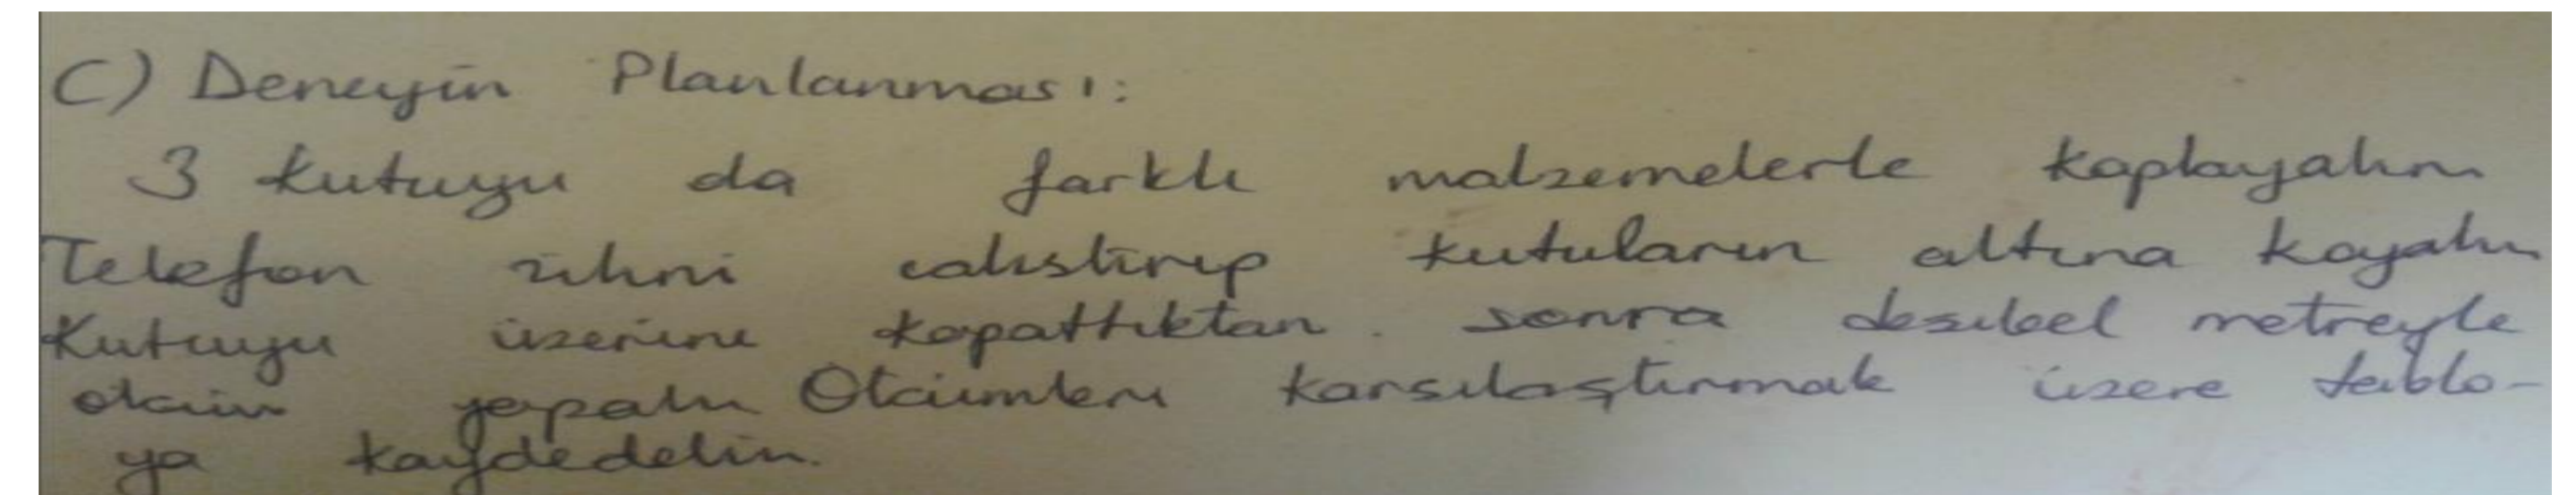 C) Deneyin Planlanması:
3 kutuyu da farklı malzemelerle kaplayalım
Telefon zilini calıstırıp kutuların altına koyalım
Kutuyu üzerine kapattıktan sonra desibel metreyle
ölcüm yapalım Ölcümleri karsılaştırmak üzere tablo-
ya kaydedelim.